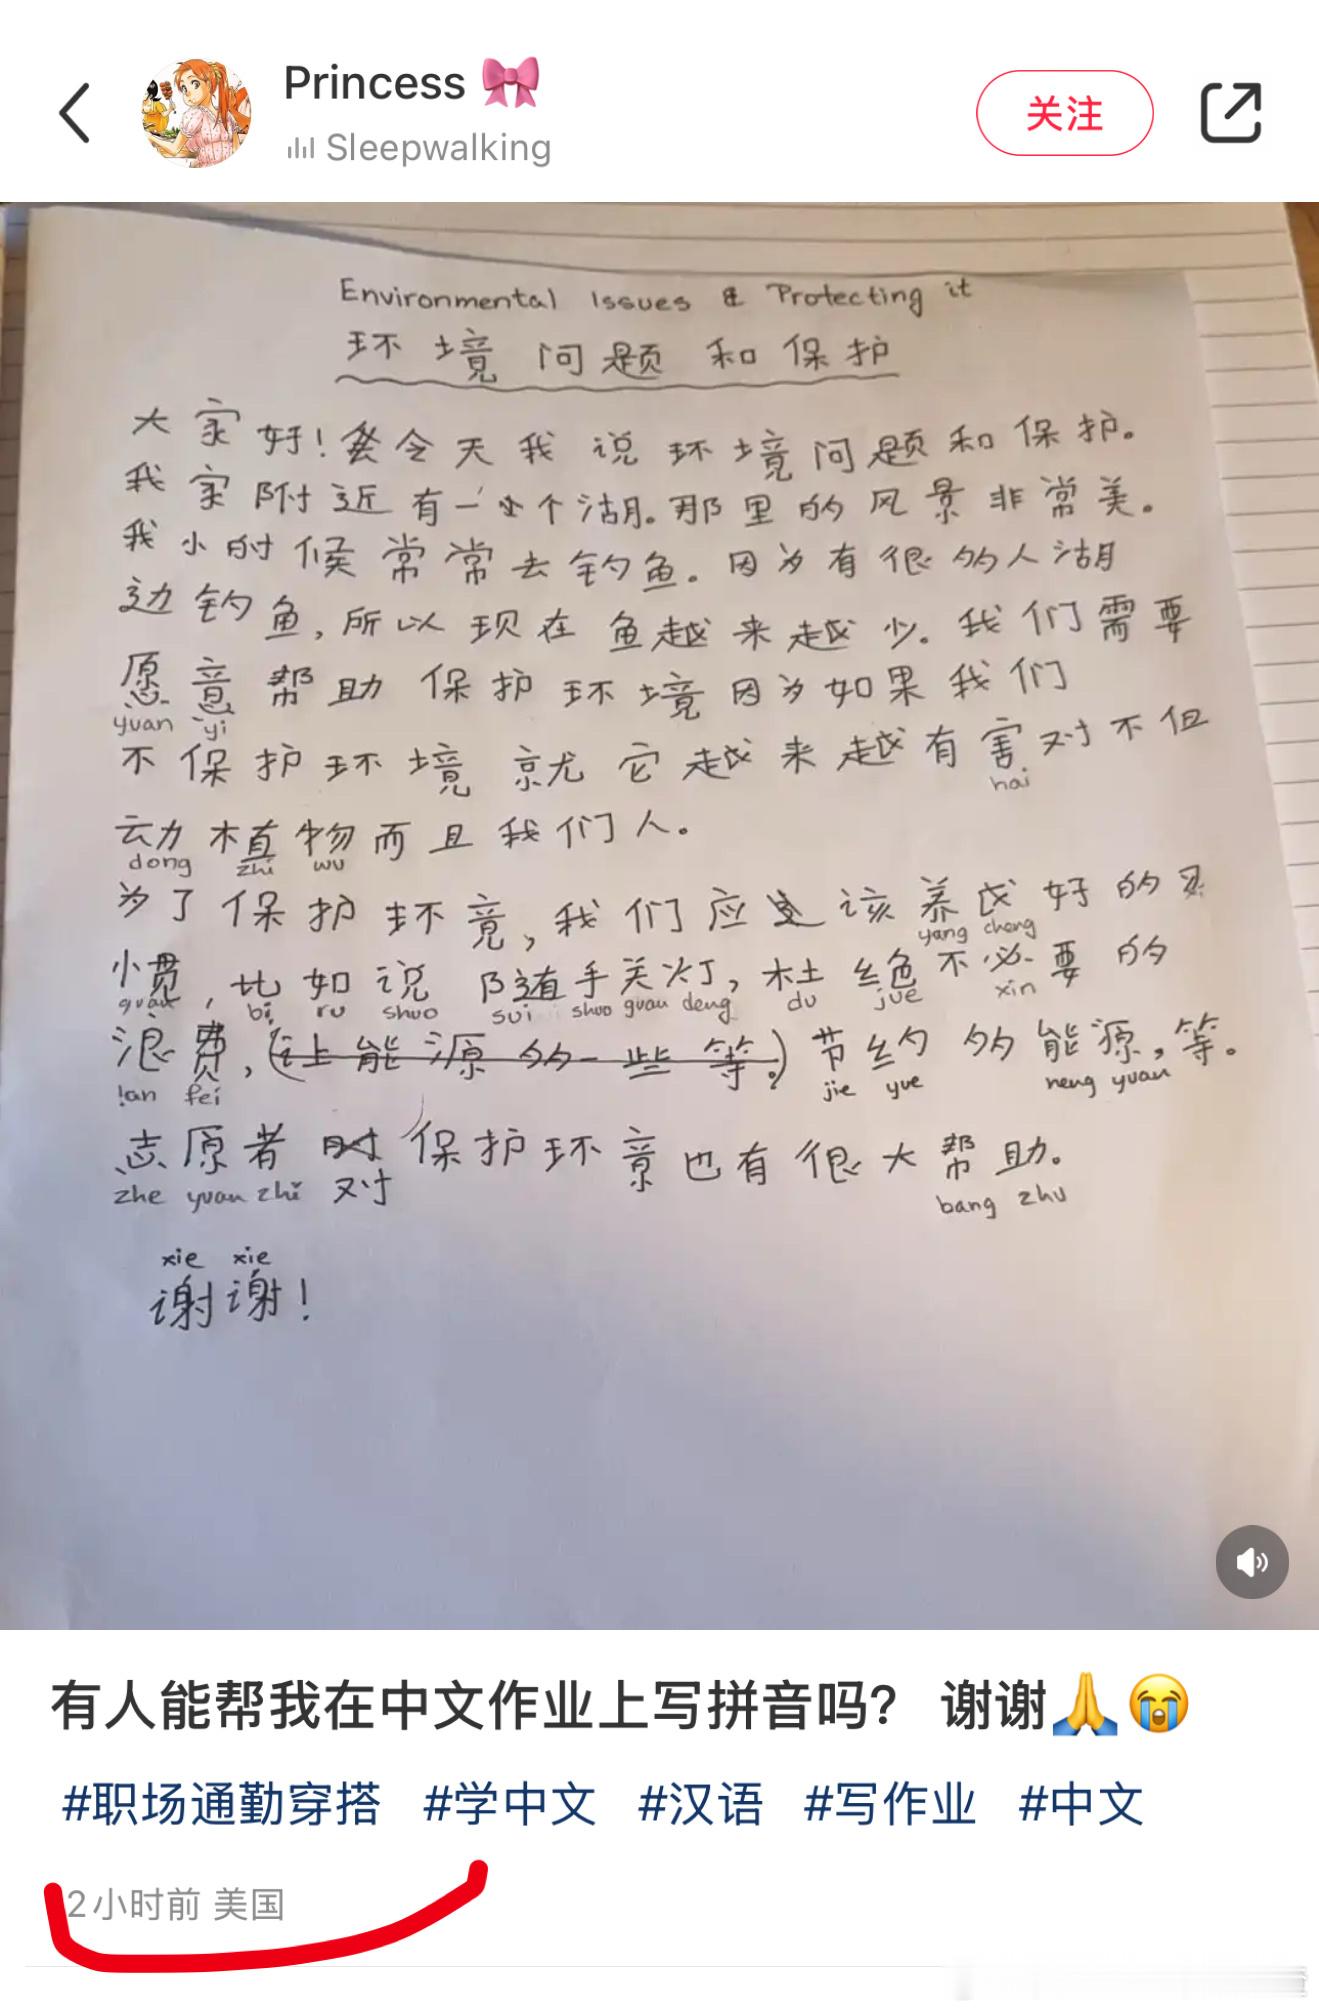 Princess 🎀
Sleepwalking
关注
Environmental Issues & Protecting it
环境问题和保护
大家好！今天我说环境问题和保护。
我家附近有一个湖。那里的风景非常美。
我小时候常常去钓鱼。因为有很多人湖
边钓鱼，所以现在鱼越来越少。我们需要
愿意帮助保护环境因为如果我们
yuan yi
不保护环境就它越来越有害对不但
hai
动植物而且我们人。
dong zhi wu
为了保护环竟，我们应该养成好的习
yang cheng
惯，比如说随手关灯，杜绝不必要的
guan bi ru shuo sui shuo guan deng du jue xin
浪费，(让能源多一些等。)节约多能源，等。
lan fei jie yue neng yuan
志愿者对保护环竟也有很大帮助。
zhe yuan zhi bang zhu
xie xie
谢谢！
有人能帮我在中文作业上写拼音吗？ 谢谢🙏😭
#职场通勤穿搭 #学中文 #汉语 #写作业 #中文
2小时前 美国